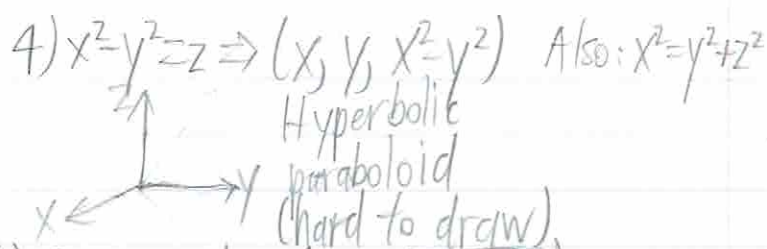 4) x²-y²=z ⇒ (x, y, x²-y²) Also: x²=y²+z²
z
Hyperbolic
y paraboloid
x (hard to draw)